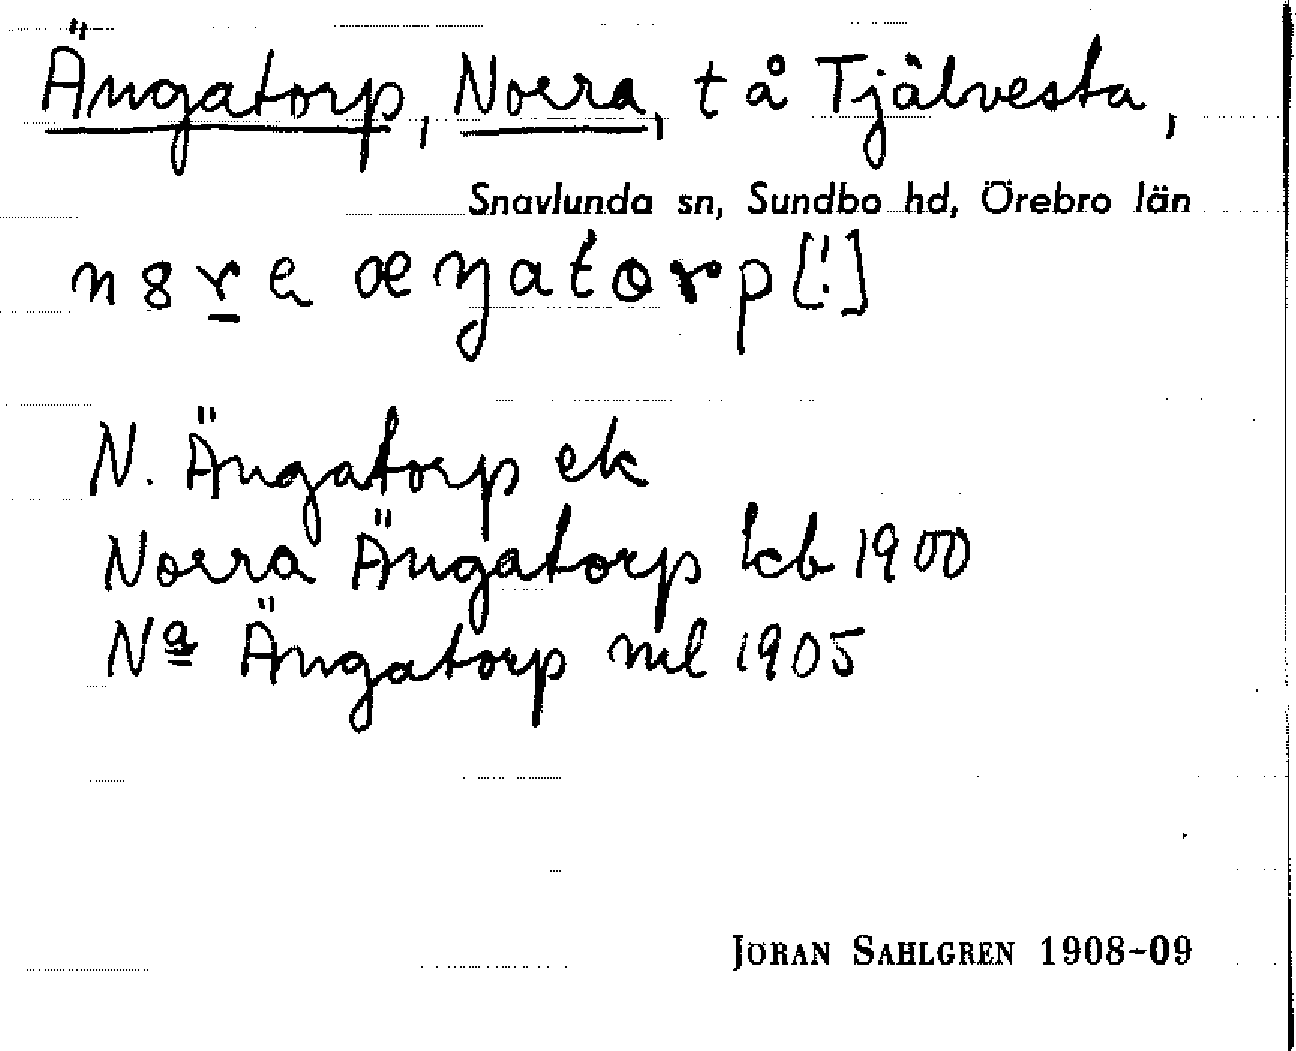 Ängatorp, Norra, t å Tjälvesta,
Snavlunda sn, Sundbo hd, Örebro län
n8ra æŋatorp [!]
N. Ängatorp ek
Norra Ängatorp lcb 1900
Nª Ängatorp ml 1905
JÖRAN SAHLGREN 1908-09